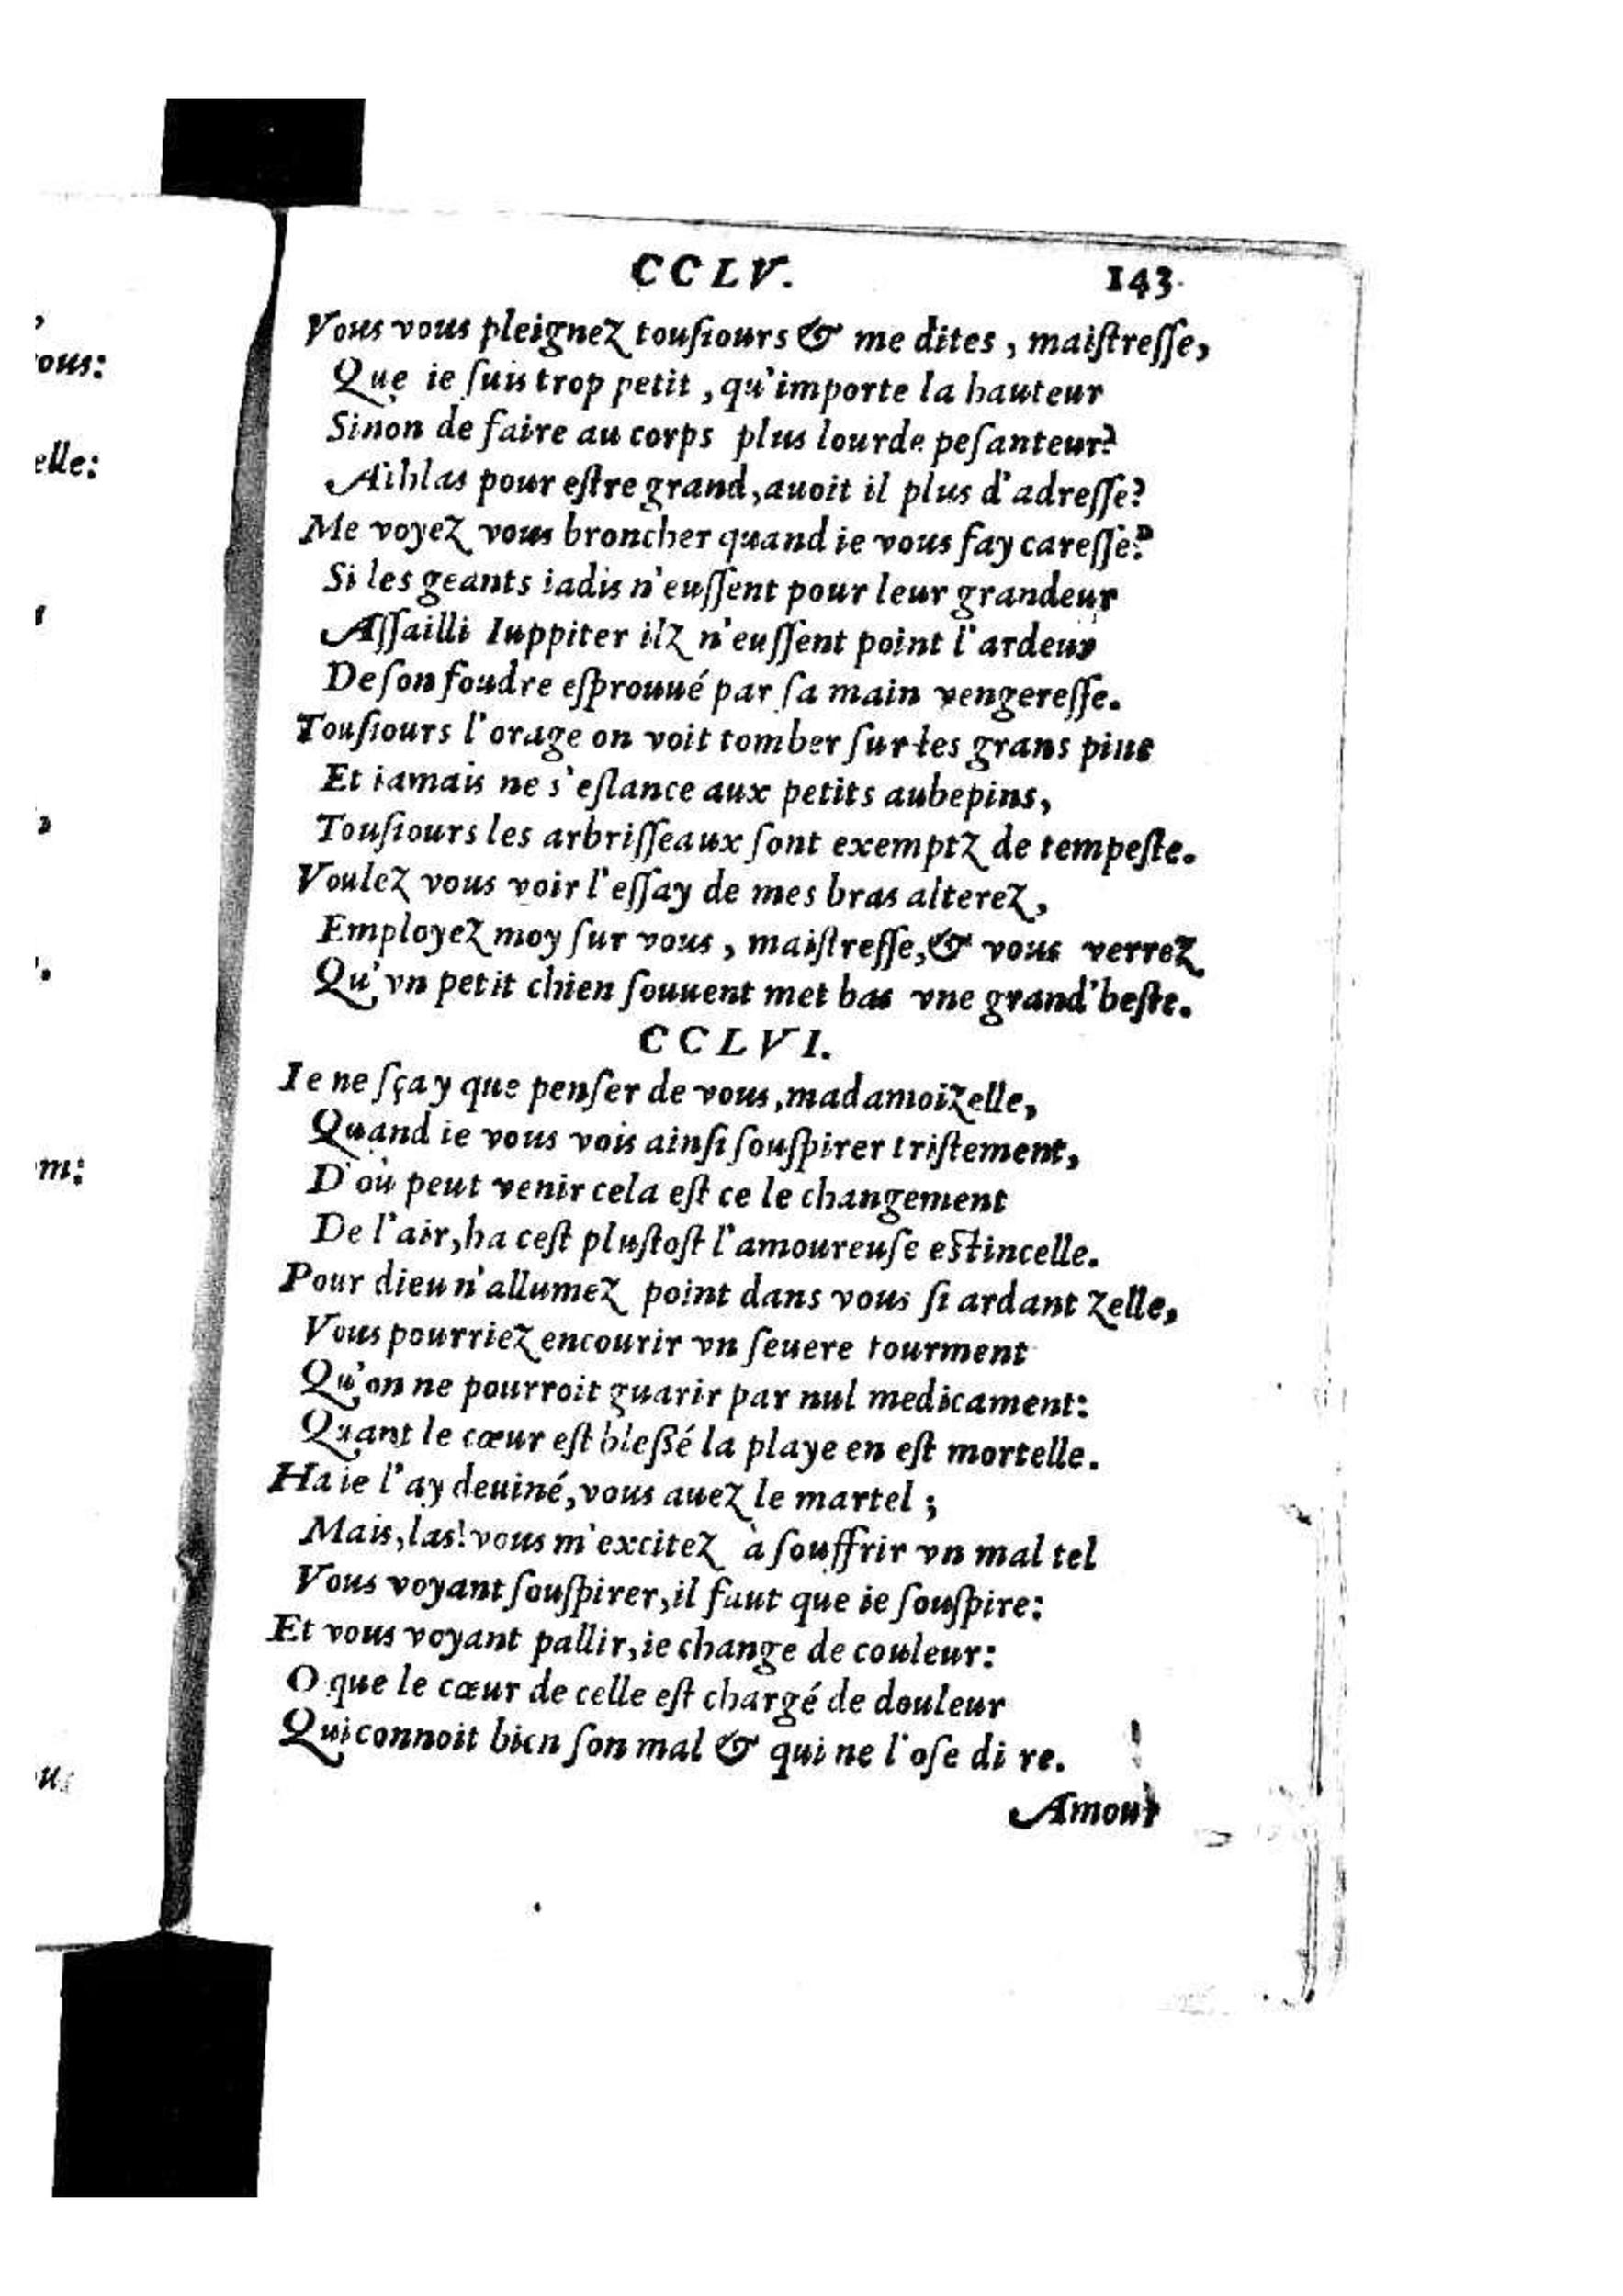 CCLV. 143.
Vous vous pleignez touſiours & me dites, maiſtreſſe,
Que ie ſuis trop petit, qu'importe la hauteur
Sinon de faire au corps plus lourde peſanteur?
Athlas pour eſtre grand, auoit il plus d'adreſſe?
Me voyez vous broncher quand ie vous fay careſſe?
Si les geants iadis n'euſſent pour leur grandeur
Aſſailli Iuppiter ilz n'euſſent point l'ardeur
De ſon foudre eſprouué par ſa main vengereſſe.
Touſiours l'orage on voit tomber ſur les grans pins
Et iamais ne s'eſlance aux petits aubepins,
Touſiours les arbriſſeaux ſont exemptz de tempeſte.
Voulez vous voir l'eſſay de mes bras alterez,
Employez moy ſur vous, maiſtreſſe, & vous verrez
Qu'vn petit chien ſouuent met bas vne grand'beſte.
CCLVI.
Ie ne ſçay que penſer de vous, madamoizelle,
Quand ie vous vois ainſi ſouſpirer triſtement,
D'où peut venir cela eſt ce le changement
De l'air, ha ceſt pluſtoſt l'amoureuſe eſtincelle.
Pour dieu n'allumez point dans vous ſi ardant zelle,
Vous pourriez encourir vn ſeuere tourment
Qu'on ne pourroit guarir par nul medicament:
Quant le cœur eſt bleßé la playe en eſt mortelle.
Ha ie l'ay deuiné, vous auez le martel;
Mais, las! vous m'excitez à ſouffrir vn mal tel
Vous voyant ſouſpirer, il faut que ie ſouſpire:
Et vous voyant pallir, ie change de couleur:
O que le cœur de celle eſt chargé de douleur
Qui connoit bien ſon mal & qui ne l'oſe di re.
Amour